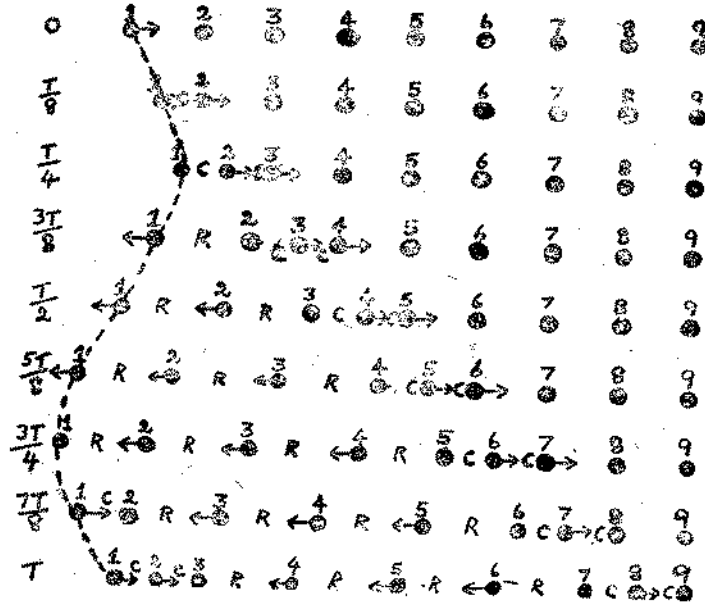 0 1 2 3 4 5 6 7 8 9
T/8 2 3 4 5 6 7 8 9
T/4 1 C 2 3 4 5 6 7 8 9
3T/8 1 R 2 C 3 C 4 5 6 7 8 9
T/2 1 R 2 R 3 C 4 5 6 7 8 9
5T/8 1 R 2 R 3 R 4 C 5 C 6 7 8 9
3T/4 R 2 R 3 R 4 R 5 C 6 C 7 8 9
7T/8 1 C 2 R 3 R 4 R 5 R 6 C 7 C 8 9
T 1 C 2 C 3 R 4 R 5 R 6 R 7 C 8 C 9